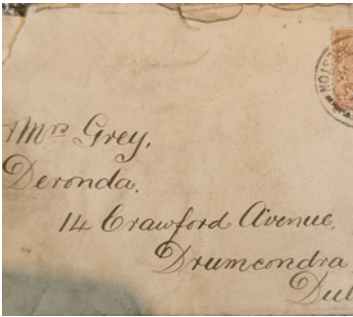 Mrs Grey,
Deronda.
14 Crawford Avenue,
Drumcondra
Dub